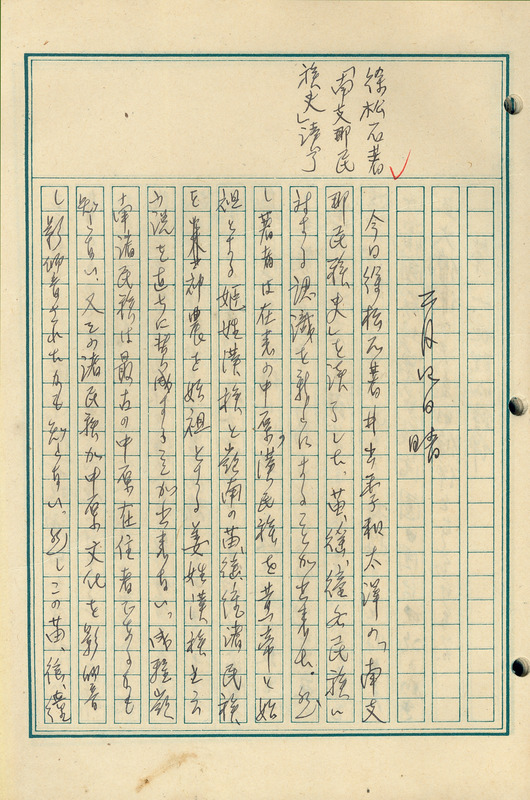 徐松石著
「南支那民
族史」読了
月 日 晴
今日徐松石著井出季和太訳の「南支
那民族史」を読了した。苗、徭、獞各民族に
対する認識を新たにすることが出来た。然
し著者は在来の中原漢民族を黄帝を始
祖とする姫姓漢族と嶺南の苗、徭、獞諸民族
と 神農を始祖とする姜姓漢族と云
ふ説を直ちに賛成することが出来ない。成程嶺
南諸民族は最古の中原在住者であるかも
知れない。又その諸民族が中原文化を影響
し影響されたかも知れない。然しこの苗、徭、獞